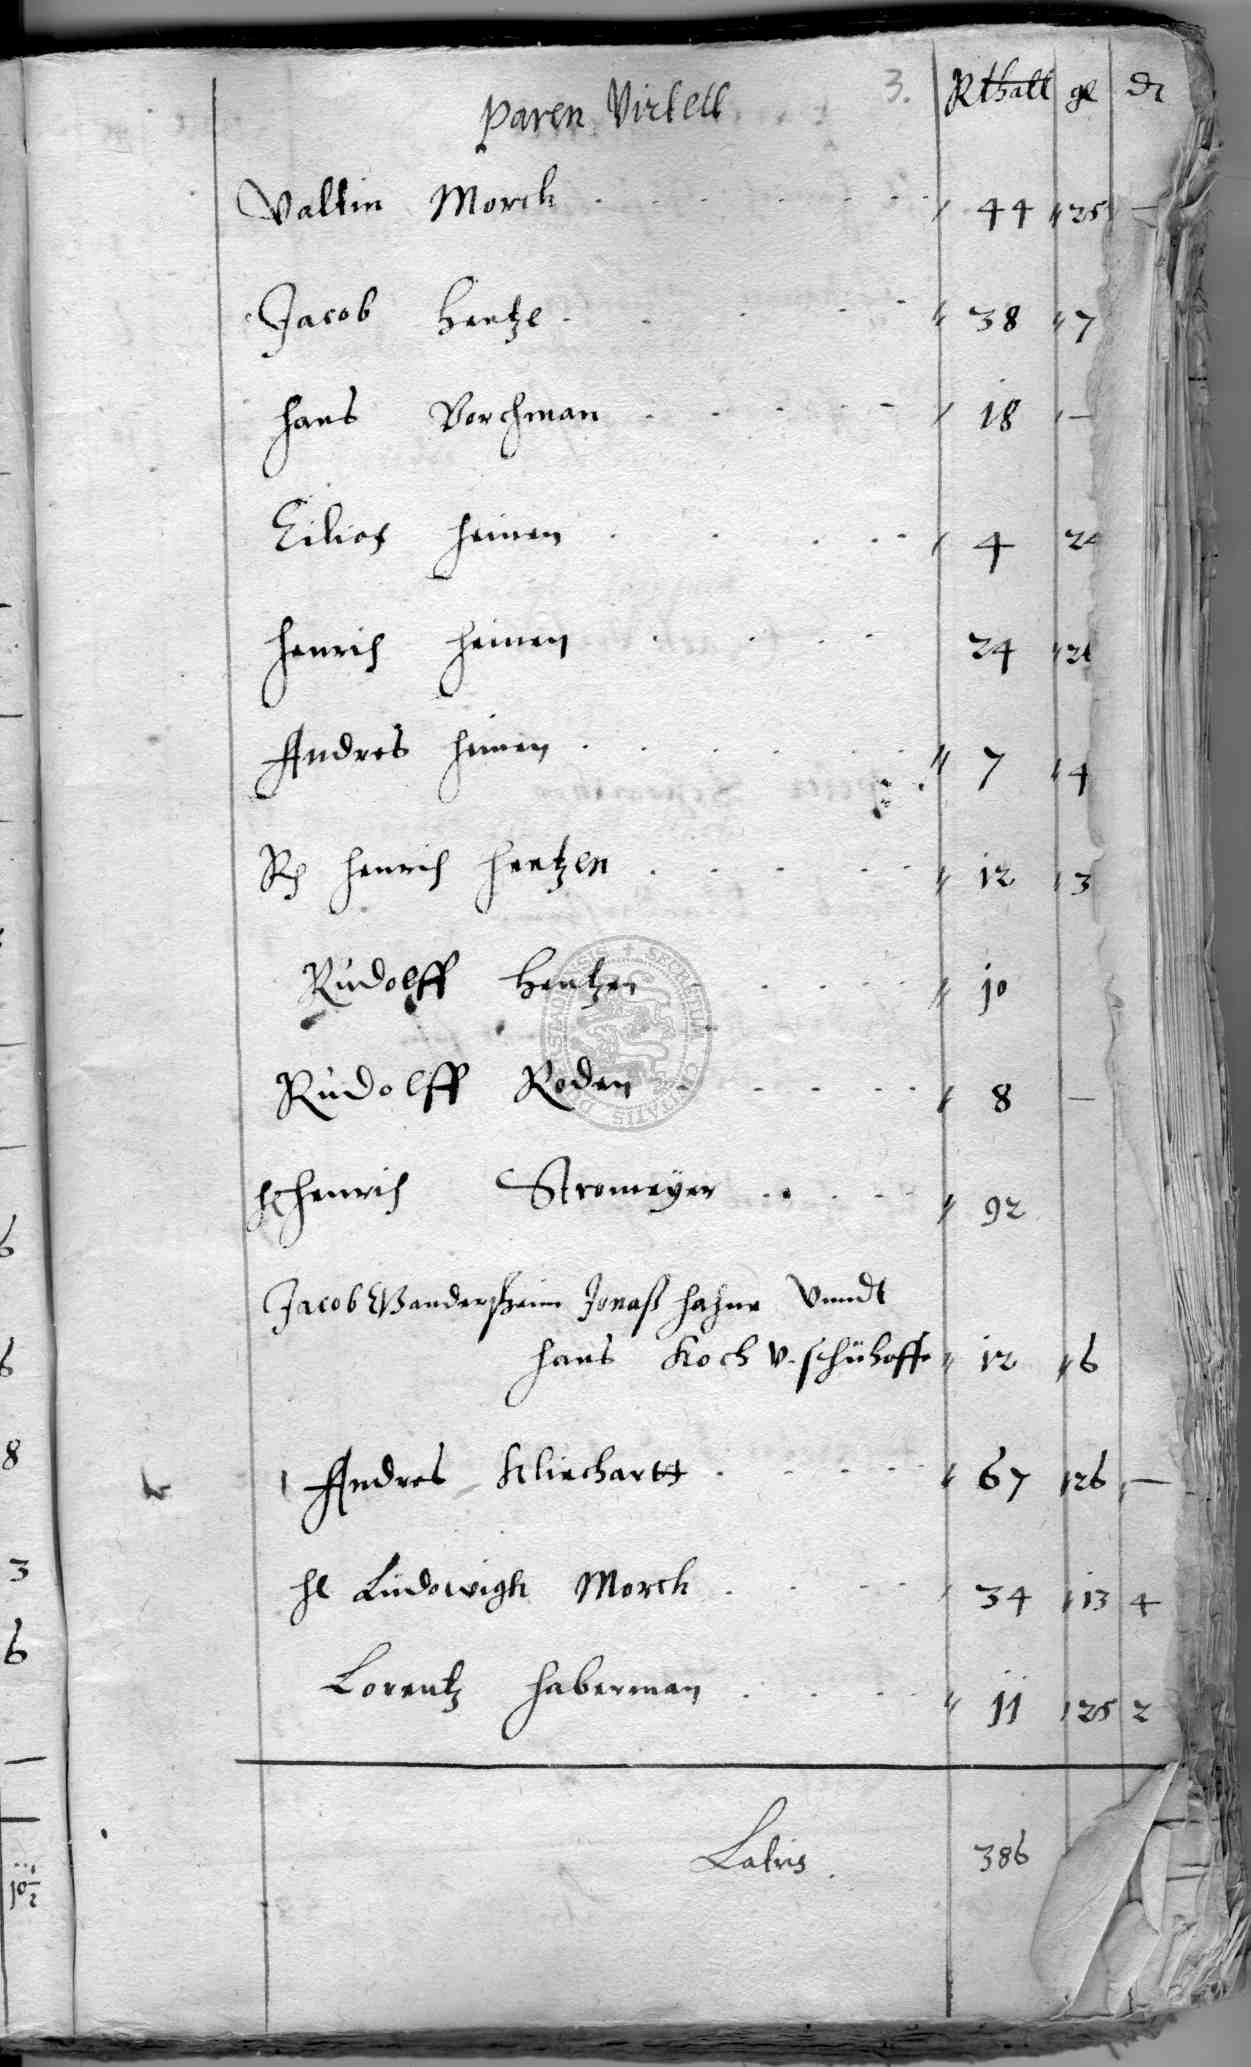 3. Rthall gl
Paren Virtell
Valtin Morck 44 25 —
Jacob Hentze 38 7
Hans Borchman 18 —
Cilios Heinen 4
Henrich Heinen 24
Andres Heinen 7 4
Henrich Hentzen 12 3
Rudolff Hentzen 10
Rudolff Roden 8 —
Henrich Stromeyer 92
Jacob Gandersheim Jonaß Hahne Unndt
Hans Koch v. Schühoffe 12 6
Andres Kliechartt 67 26 —
Ludowigk Morck 34 13 4
Lorentz Haberman 11 25 2
Latris 386
6
6
8
3
6